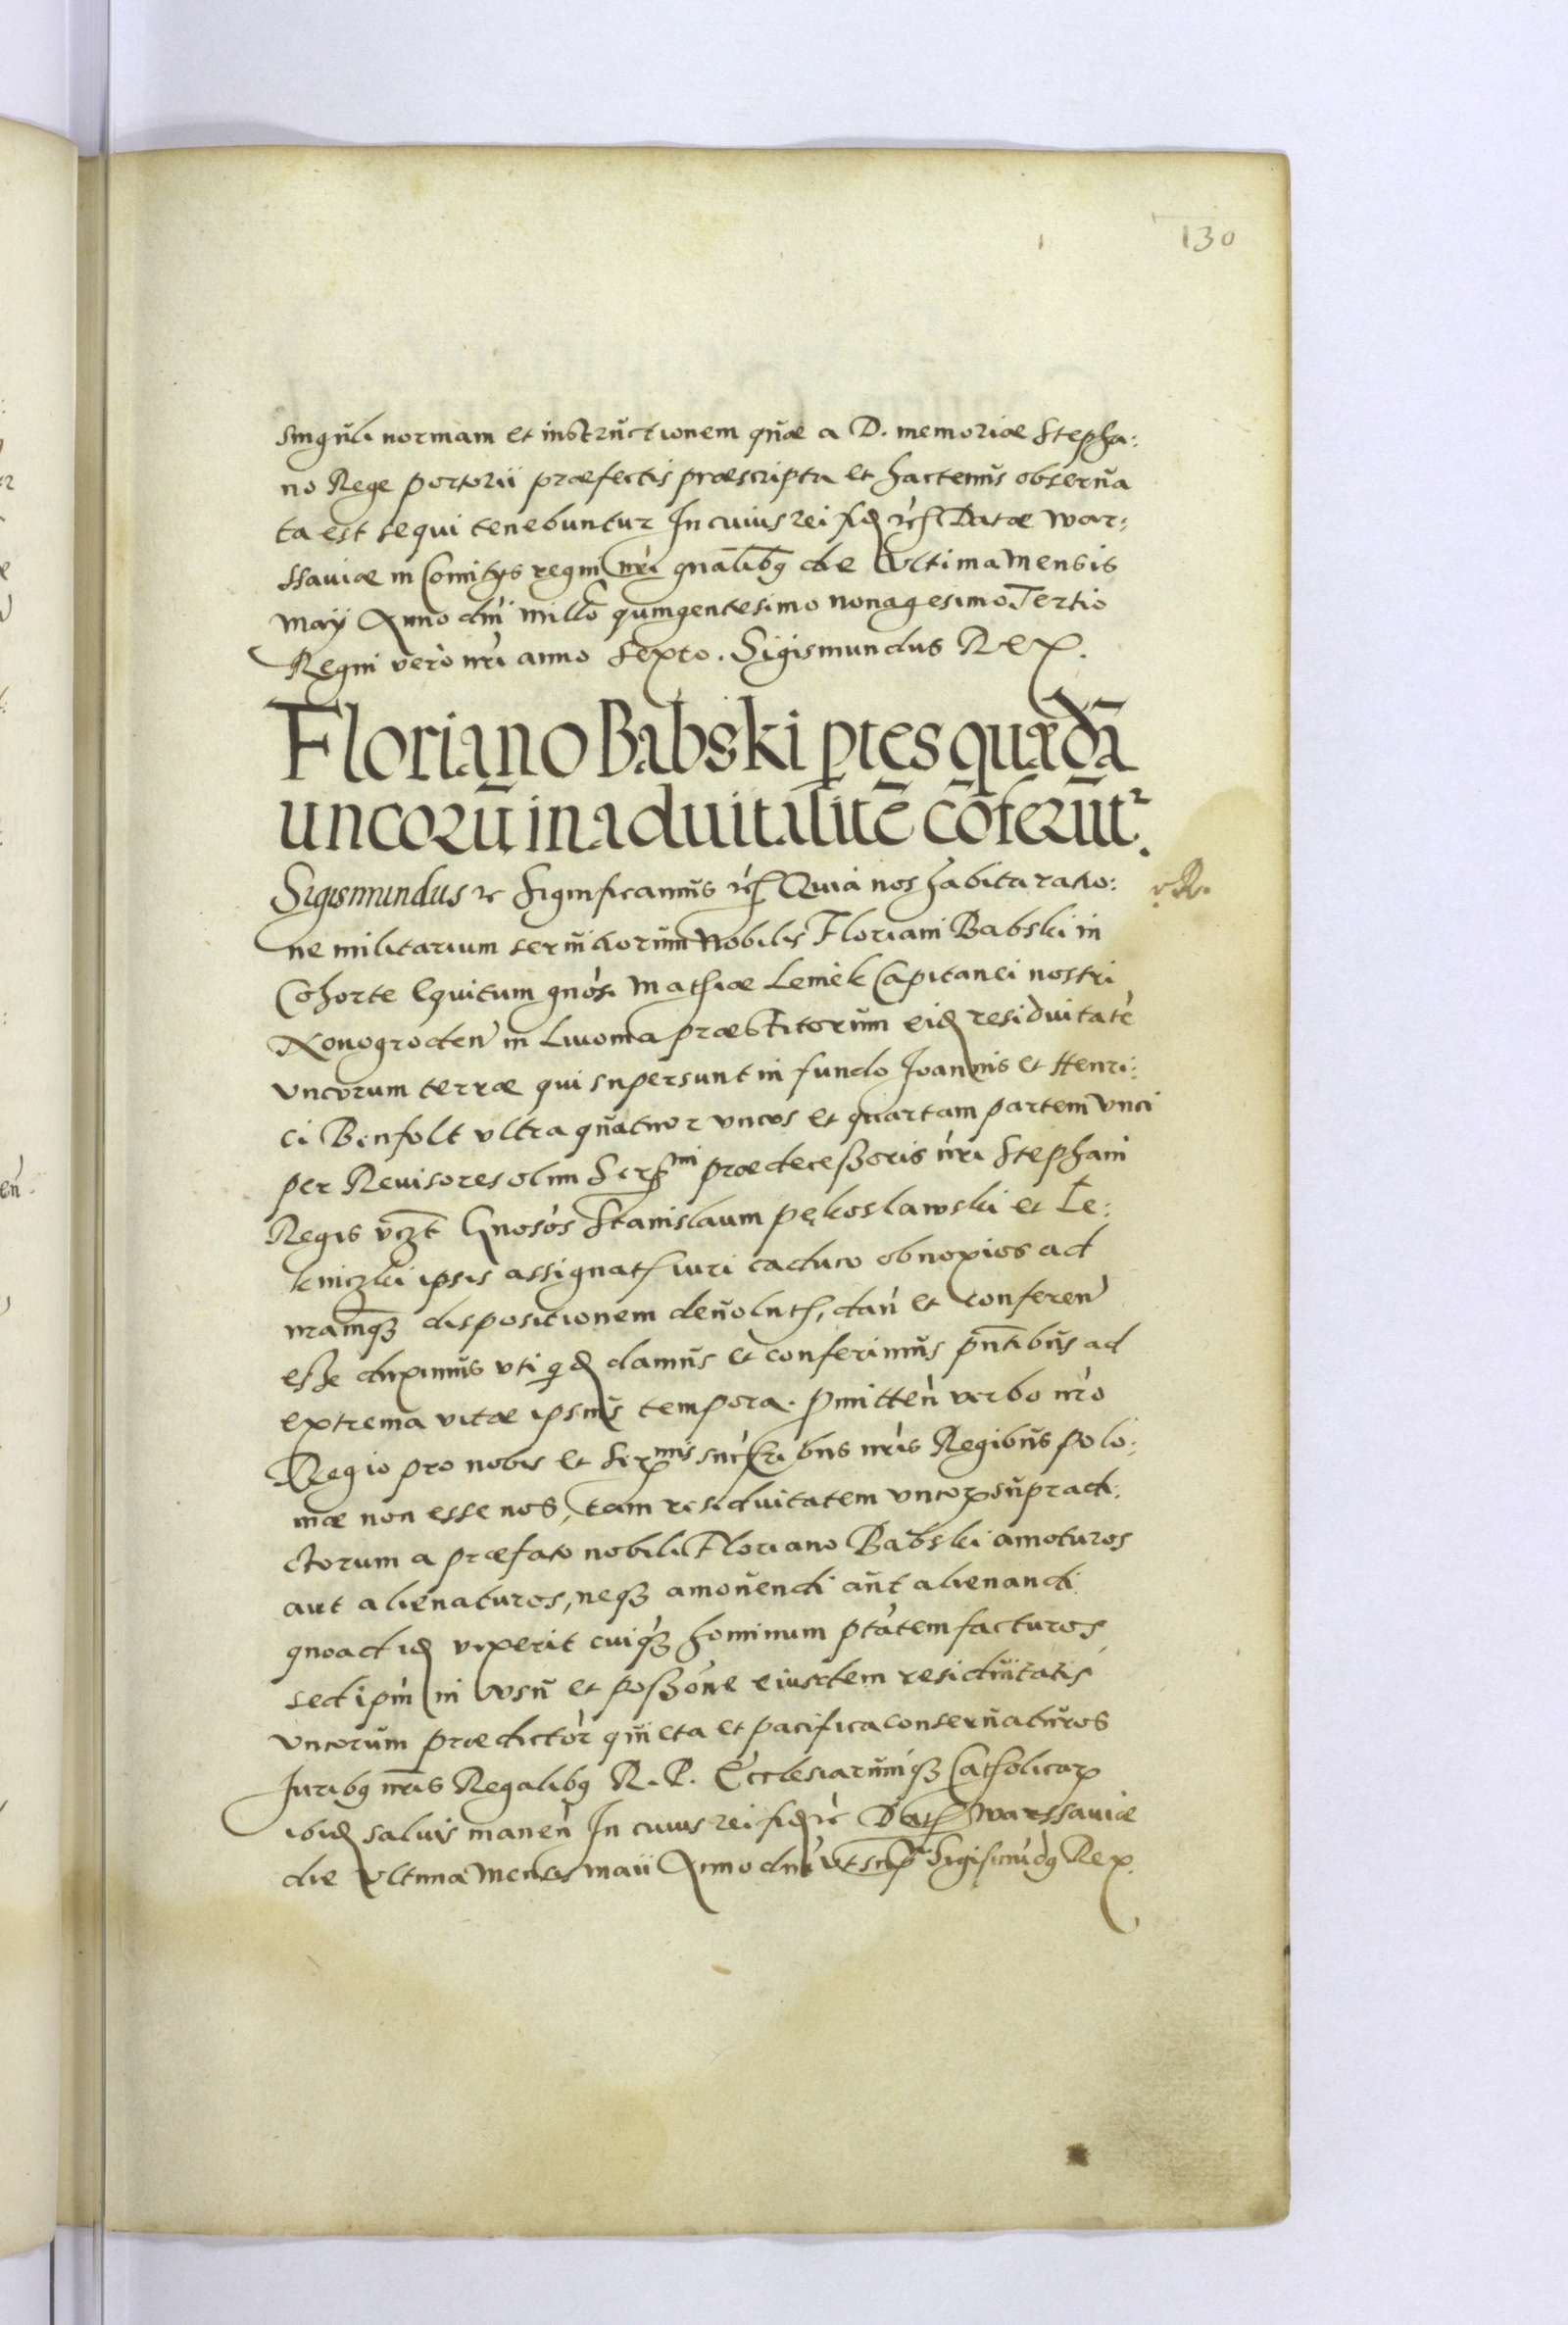 130
singuli normam et instructionem quæ a D. memoriæ Stepha:
no Rege portorii præfectis præscripta et hactenus obserua
ta est sequi tenebuntur In cuius rei fid etc Datæ War:
ssauiæ in Comitijs regni nri gnalibq die Vltima Mensis
Maÿ Anno dni millo quingentesimo nonagesimo Tertio
Regni vero nri anno Sexto. Sigismundus Rex.
Floriano Babski ptes quædã
uncorũ in aduitalitẽ cõferũtr.
Sigismundus etc Significamus etc Quia nos habita ratio:
ne militarium seruitiorum Nobilis Floriani Babski in
Cohorte Equitum gnosi Mathiæ Leniek Capitanei nostri
Nonogroden in Liuonia præstitorum eid residuitate
vncorum terræ qui supersunt in fundo Joannis et Henri:
ci Binfolt vltra quatuor vncos et quartam partem vnci
per Reuisores olim Sermi prædecessoris nri Stephani
Regis vczt Gnosos Stanislaum Pękoslawski et Le:
kniczki ipsis assignat iuri caduco obnoxios ad
nramq dispositionem deuolut, dan et conferen
esse duximus vti qd damus et conferimus pntibus ad
extrema vitæ ipsius tempora. Pmitten verbo nro
Regio pro nobis et Sermis succribus nris Regibus Polo:
niæ non esse nos, eam residuitatem vncor supradi:
ctorum a præfato nobili Floriano Babski amoturos
aut alienaturos, neq amouendi aut alienandi
quoad id vixerit cuiq hominum ptatem facturos
sed ipm in vsu et possone eiusdem residuitatis
vncorum prædictor quieta et pacifica conseruaturos
Juribq nris Regalibq R. P. Ecclesiarumq Catholicar
ibid saluis manen In cuius rei fid etc Dat Warssauiæ
die vltima Mensis Maii Anno dni vt supra Sigismudq Rex.